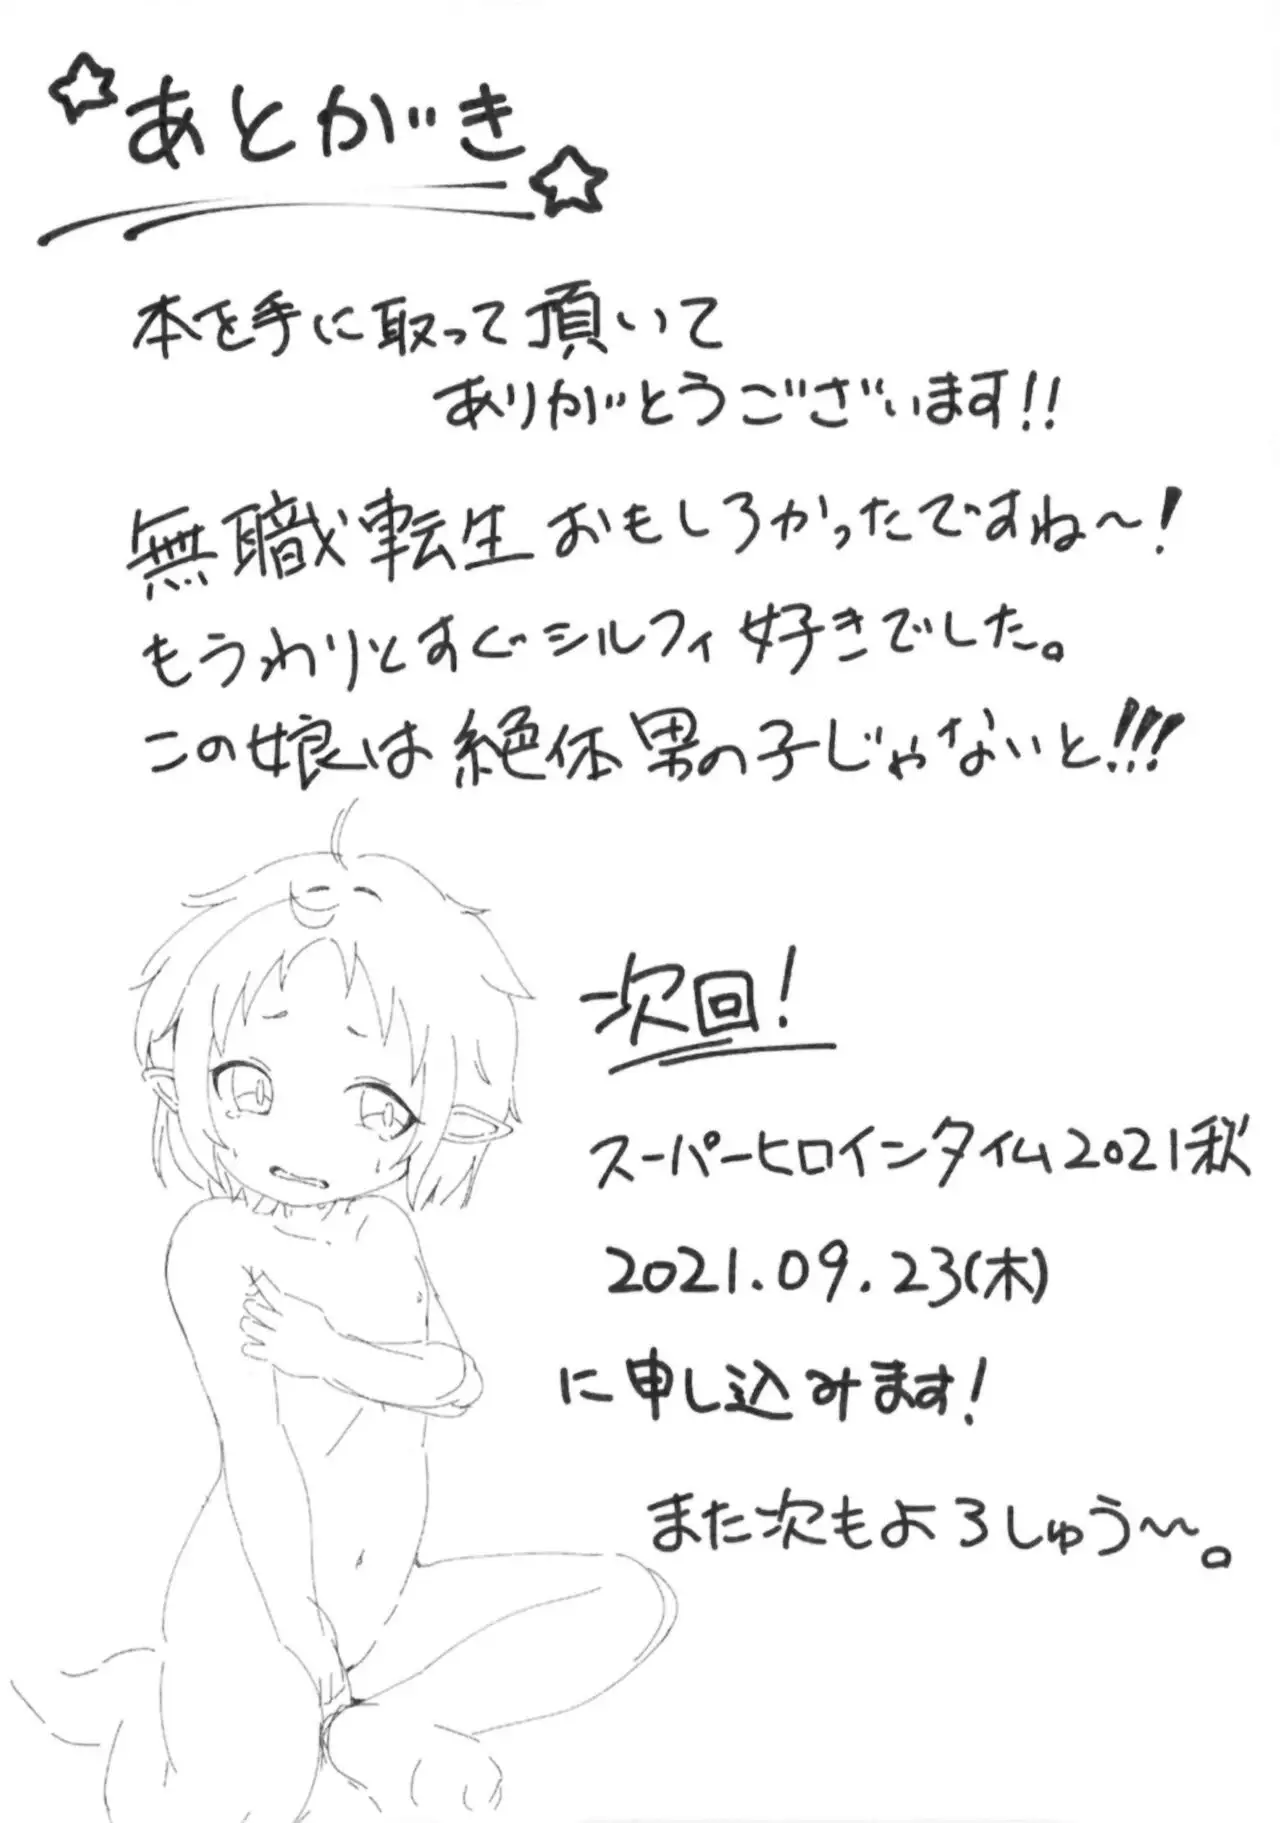 あとがき
本を手に取って頂いて
ありがとうございます!!
無職転生おもしろかったですね～!
もうわりとすぐシルフィ好きでした。
この娘は絶体男の子じゃないと!!!
次回!
スーパーヒロインタイム2021秋
2021.09.23(木)
に申し込みます!
また次もよろしゅう～。